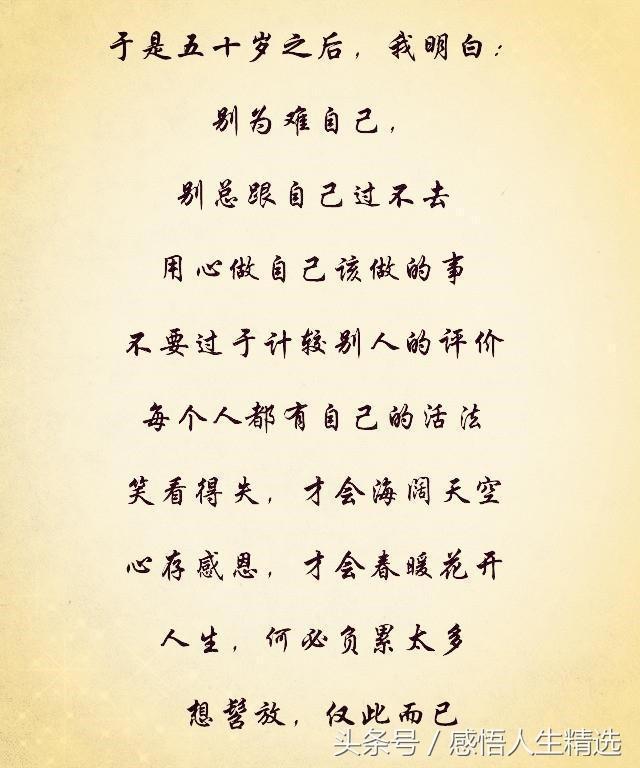 于是五十岁之后，我明白：
别为难自己，
别总跟自己过不去
用心做自己该做的事
不要过于计较别人的评价
每个人都有自己的活法
笑看得失，才会海阔天空
心存感恩，才会春暖花开
人生，何必负累太多
想髻放，仅此而已
头条号 / 感悟人生精选